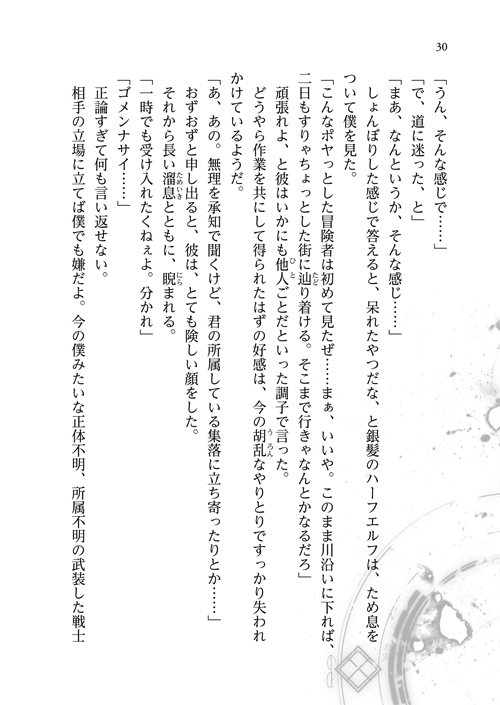 30
「うん、そんな感じで……」
「で、道に迷った、と」
「まあ、なんというか、そんな感じ……」
しょんぼりした感じで答えると、呆れたやつだな、と銀髪のハーフエルフは、ため息を
ついて僕を見た。
「こんなポヤっとした冒険者は初めて見たぜ……まぁ、いいや。このまま川沿いに下れば、
二日もすりゃちょっとした街に辿り着ける。そこまで行きゃなんとかなるだろ」
頑張れよ、と彼はいかにも他人ごとだといった調子で言った。
どうやら作業を共にして得られたはずの好感は、今の胡乱なやりとりですっかり失われ
かけているようだ。
「あ、あの。無理を承知で聞くけど、君の所属している集落に立ち寄ったりとか……」
おずおずと申し出ると、彼は、とても険しい顔をした。
それから長い溜息とともに、睨まれる。
「一時でも受け入れたくねぇよ。分かれ」
「ゴメンナサイ……」
正論すぎて何も言い返せない。
相手の立場に立てば僕でも嫌だよ。今の僕みたいな正体不明、所属不明の武装した戦士